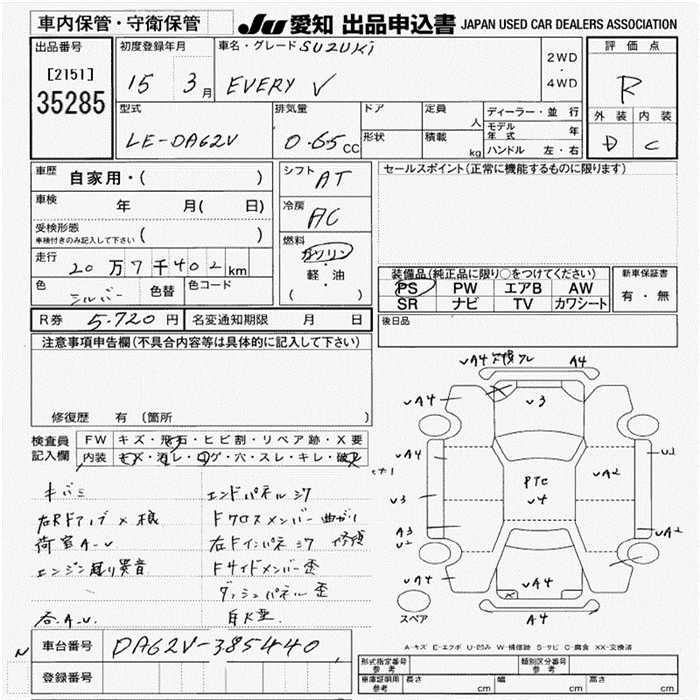 車内保管・守衛保管 JU 愛知 出品申込書 JAPAN USED CAR DEALERS ASSOCIATION
出品番号 初度登録年月 車名・グレード SUZUKI 2WD・4WD 評価点
[2151] 35285 15 3月 EVERY V R
型式 排気量 ドア 定員 人 ディーラー・並行 外装 内装
LE-DA62V 0.65cc 形状 積載 kg モデル年式 年 D C
ハンドル 左・右
車歴 自家用・( ) シフト AT セールスポイント(正常に機能するものに限ります)
車検 年 月( 日) 冷房 AC
受検形態 ( )
車検付きのみ記入して下さい
走行 20万7千402km 燃料 ガソリン・軽・油 ( )
装備品(純正品に限り○をつけてください) 新車保証書
色 シルバー 色替 色コード PS PW エアB AW 有・無
SR ナビ TV カワシート
R券 5.720円 名変通知期限 月 日 後日品
注意事項申告欄(不具合内容等は具体的に記入して下さい)
修復歴 有 (箇所 )
検査員記入欄 FW キズ・飛石・ヒビ割・リペア跡・X要
内装 キズ・汚レ・コゲ・穴・スレ・キレ・破レ
キバミ エンドパネル
右RFアップ X 根 Fクロスメンバー曲がり
荷室A.U 左Fインパネ
エンジン廻り異音 Fサイドメンバー歪
ダッシュパネル歪
各A.U
車台番号 DA62V-385440
登録番号
A4 A4
A4 3
A4 U1
PTC A2
3 4
A3 A2
U2
A4 A4
スペア A4
A-キズ E-エクボ U-凹み W-補修跡 S-サビ C-腐食 XX-交換済
形式指定番号 参考 類別区分番号 参考
車庫証明用 参考 長さ cm 幅 cm 高さ cm